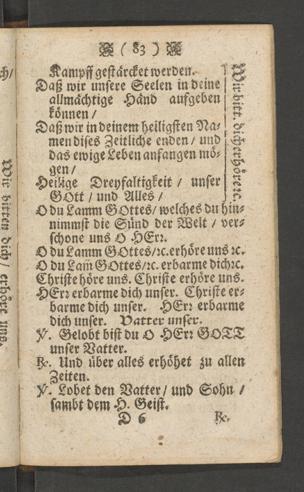 ( 83 )
Kampff gestärcket werden.
Daß wir unsere Seelen in deine
allmächtige Händ aufgeben
können /
Daß wir in deinem heiligsten Na-
men dises Zeitliche enden / und
das ewige Leben anfangen mö-
gen /
Heilige Dreyfaltigkeit / unser
GOtt / und Alles /
O du Lamm GOttes / welches du hin-
nimmst die Sünd der Welt / ver-
schone uns O HErr.
O du Lamm GOttes / ꝛc. erhöre uns ꝛc.
O du Lam̃ GOttes / ꝛc. erbarme dich ꝛc.
Christe höre uns. Christe erhöre uns.
HErr erbarme dich unser. Christe er-
barme dich unser. HErr erbarme
dich unser. Vatter unser.
℣. Gelobt bist du O HErr GOTT
unser Vatter.
℟. Und über alles erhöhet zu allen
Zeiten.
℣. Lobet den Vatter / und Sohn /
sambt dem H. Geist.
D 6 ℟.
Wir bitt. dich erhöre ꝛc.
ch /
Wir bitten dich / erhöre uns.